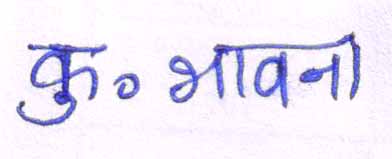 कु॰ भावना